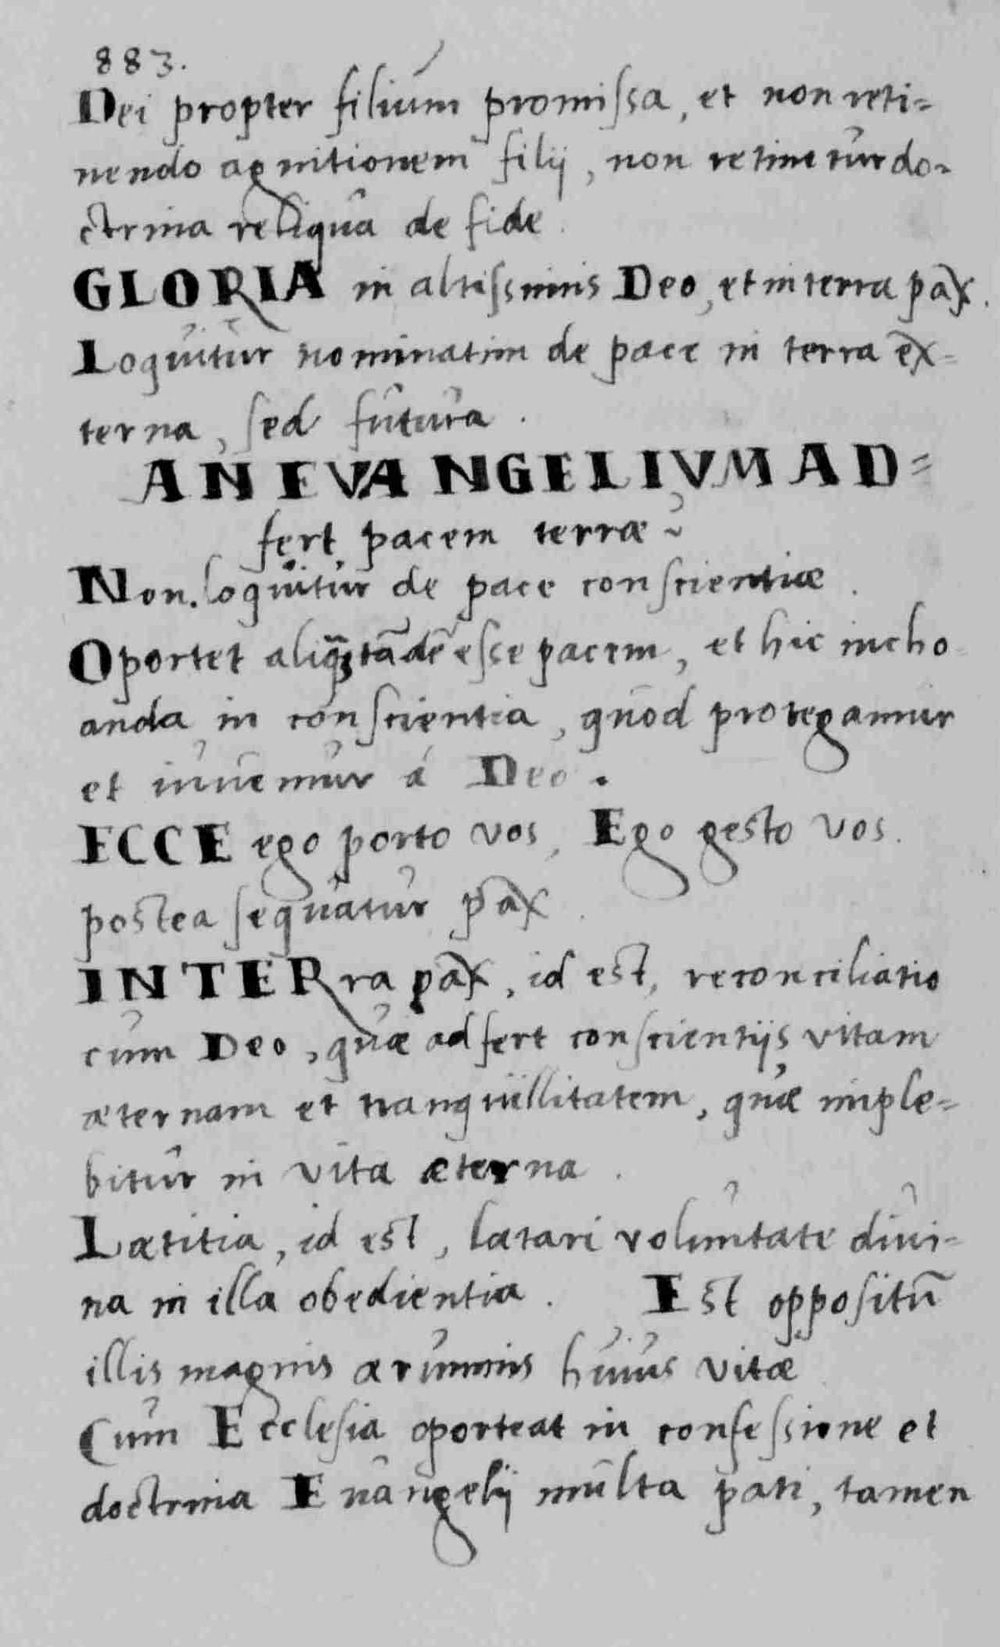 883.
Dei propter filium promissa, et non reti=
nendo agnitionem filij, non retinetur do=
ctrina reliqua de fide.
GLORIA in altissimis Deo, et in terra pax.
Loquitur nominatim de pace in terra ex=
terna, sed futura.
AN EVANGELIVM AD=
fert pacem terræ
Non. loquitur de pace conscientiæ.
Oportet aliquã tãdẽ esse pacem, et hic incho
anda in conscientia, quod protegamur
et iuuemur á Deo.
ECCE ego porto vos, Ego gesto vos.
postea sequatur pax.
IN TERRra pax, id est, reconciliatio
cum Deo, quæ adfert conscientijs vitam
æternam et tranquillitatem, quæ imple=
bitur in vita æterna.
Lætitia, id est, lætari voluntate diui=
na in illa obedientia. Est oppositũ
illis magnis ærumnis huius vitæ
Cum Ecclesia oporteat in confessione et
doctrina Euangelij multa pati, tamen